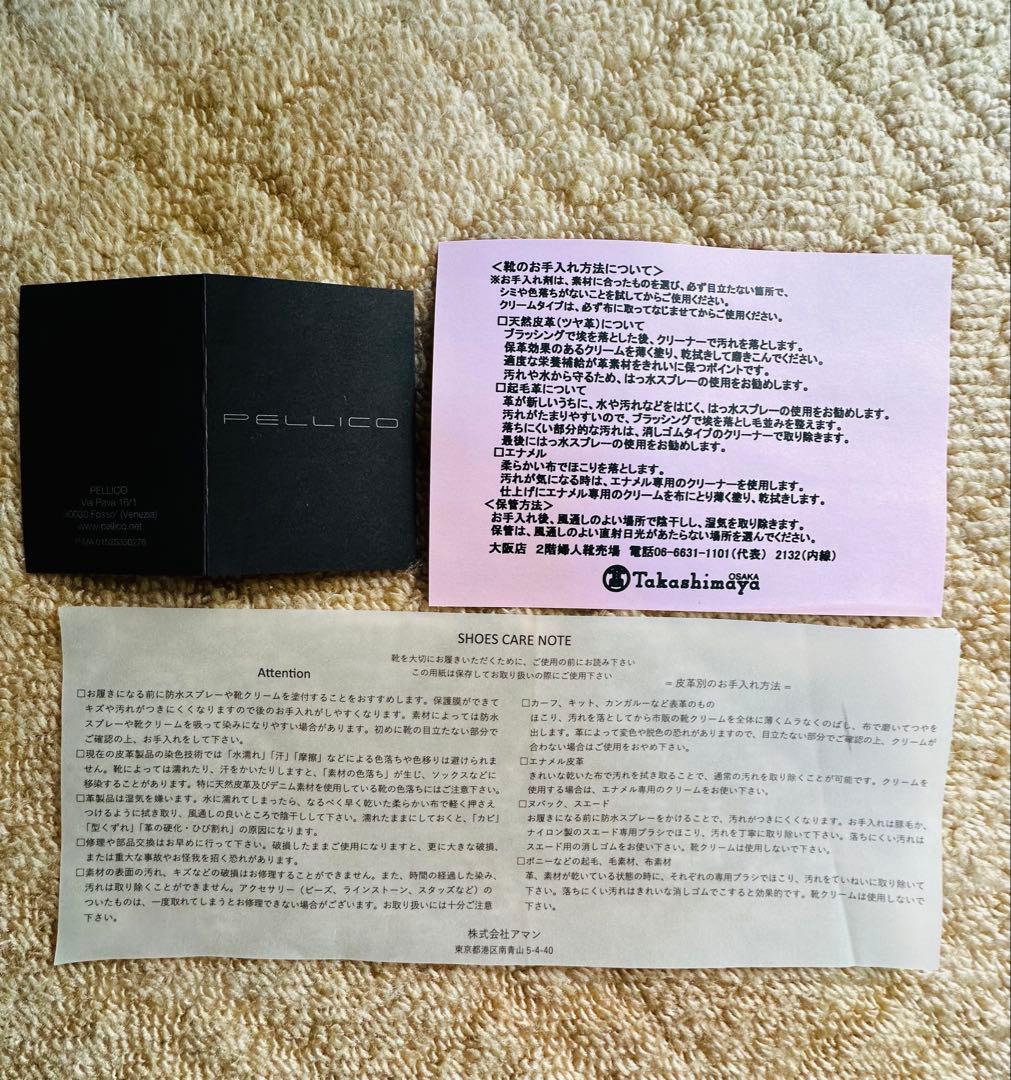 PELLICO
PELLICO
Via Pava 16/1
30030 Fosso' (Venezia)
www.pellico.net
<靴のお手入れ方法について>
※お手入れ剤は、素材に合ったものを選び、必ず目立たない箇所で、
シミや色落ちがないことを試してからご使用ください。
クリームタイプは、必ず布に取ってなじませてからご使用ください。
□天然皮革(ツヤ革)について
ブラッシングで埃を落とした後、クリーナーで汚れを落とします。
保革効果のあるクリームを薄く塗り、乾拭きして磨きこんでください。
適度な栄養補給が革素材をきれいに保つポイントです。
汚れや水から守るため、はっ水スプレーの使用をお勧めします。
□起毛革について
革が新しいうちに、水や汚れなどをはじく、はっ水スプレーの使用をお勧めします。
汚れがたまりやすいので、ブラッシングで埃を落とし毛並みを整えます。
落ちにくい部分的な汚れは、消しゴムタイプのクリーナーで取り除きます。
最後にはっ水スプレーの使用をお勧めします。
□エナメル
柔らかい布でほこりを落とします。
汚れが気になる時は、エナメル専用のクリーナーを使用します。
仕上げにエナメル専用のクリームを布にとり薄く塗り、乾拭きします。
<保管方法>
お手入れ後、風通しのよい場所で陰干しし、湿気を取り除きます。
保管は、風通しのよい直射日光があたらない場所を選んでください。
大阪店 2階婦人靴売場 電話06-6631-1101(代表) 2132(内線)
Takashimaya OSAKA
SHOES CARE NOTE
靴を大切にお履きいただくために、ご使用の前にお読み下さい
この用紙は保存してお取り扱いの際にご使用下さい
Attention
□お履きになる前に防水スプレーや靴クリームを塗付することをおすすめします。保護膜ができて
キズや汚れがつきにくくなりますので後のお手入れがしやすくなります。素材によっては防水
スプレーや靴クリームを吸って染みになりやすい場合があります。初めに靴の目立たない部分で
ご確認の上、お手入れをして下さい。
□現在の皮革製品の染色技術では「水濡れ」「汗」「摩擦」などによる色落ちや色移りは避けられま
せん。靴によっては濡れたり、汗をかいたりしますと、「素材の色落ち」が生じ、ソックスなどに
移染することがあります。特に天然皮革及びデニム素材を使用している靴の色落ちにはご注意下さい。
□革製品は湿気を嫌います。水に濡れてしまったら、なるべく早く乾いた柔らかい布で軽く押さえ
つけるように拭き取り、風通しの良いところで陰干しして下さい。濡れたままにしておくと、「カビ」
「型くずれ」「革の硬化・ひび割れ」の原因になります。
□修理や部品交換はお早めに行って下さい。破損したままご使用になりますと、更に大きな破損、
または重大な事故やお怪我を招く恐れがあります。
□素材の表面の汚れ、キズなどの破損はお修理することができません。また、時間の経過した染み、
汚れは取り除くことができません。アクセサリー(ビーズ、ラインストーン、スタッズなど)の
ついたものは、一度取れてしまうとお修理できない場合がございます。お取り扱いには十分ご注意
下さい。
=皮革別のお手入れ方法=
□カーフ、キット、カンガルーなど表革のもの
ほこり、汚れを落としてから市販の靴クリームを全体に薄くムラなくのばし、布で磨いてつやを
出します。革によって変色や脱色の恐れがありますので、目立たない部分でご確認の上、クリームが
合わない場合はご使用をおやめ下さい。
□エナメル皮革
きれいな乾いた布で汚れを拭き取ることで、通常の汚れを取り除くことが可能です。クリームを
使用する場合は、エナメル専用のクリームをお使い下さい。
□ヌバック、スエード
お履きになる前に防水スプレーをかけることで、汚れがつきにくくなります。お手入れは豚毛か、
ナイロン製のスエード専用ブラシでほこり、汚れを丁寧に取り除いて下さい。落ちにくい汚れは
スエード用の消しゴムをお使い下さい。靴クリームは使用しないで下さい。
□ポニーなどの起毛、毛素材、布素材
革、素材が乾いている状態の時に、それぞれの専用ブラシでほこり、汚れをていねいに取り除いて
下さい。落ちにくい汚れはきれいな消しゴムでこすると効果的です。靴クリームは使用しないで
下さい。
株式会社アマン
東京都港区南青山 5-4-40